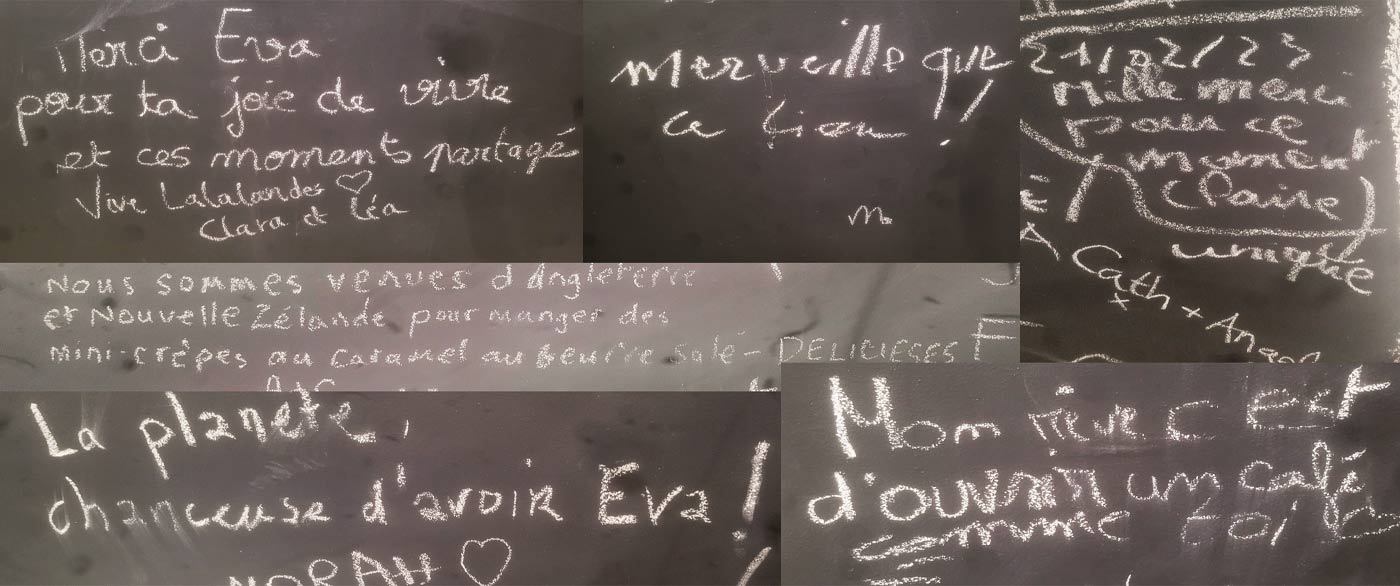 Merci Eva
pour ta joie de vivre
et ces moments partagé
Vive Lalalandes ♡
Clara et Léa
merveille que
ce lieu !!
m
21/02/23
Mille merci
pour ce
moment
(Paire)
unique
Cath +
Nous sommes venues d'Angleterre
et Nouvelle Zélande pour manger des
mini-crêpes au caramel au beurre salé - DELICIESES
La planète,
chanceuse d'avoir Eva !
NORAH ♡
Mon rêve c est
d'ouvrir un café
comme toi